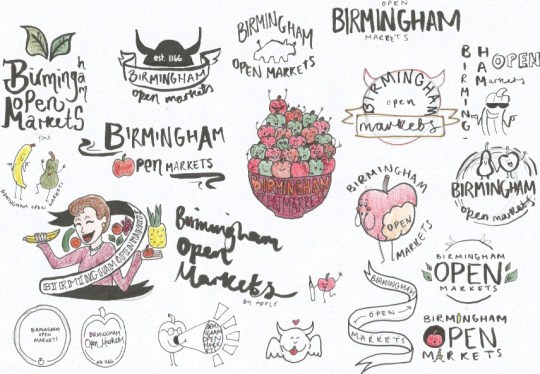 Birmingham
Open
Markets
est. 1166
BIRMINGHAM
open markets
BIRMINGHAM
OPEN MARKETS
OPEN
BIRMINGHAM
MARKETS
BIRMINGHAM
open
markets
BIRMING
HAM
OPEN
Markets
BIRMINGHAM
Open MARKETS
BIRMINGHAM
OPEN MARKETS
BIRMINGHAM OPEN MARKETS
BIRMINGHAM
OPEN
MARKETS
BIRMINGHAM
open markets
BIRMINGHAM OPEN MARKETS
Birmingham
Open
Markets
BIRMINGHAM
OPEN
MARKETS
BIRMINGHAM
OPEN
MARKETS
BIRMINGHAM
OPEN
MARKETS
BIRMINGHAM
Open Markets
BIRMINGHAM
OPEN
MARKETS
BIRMINGHAM
OPEN
MARKETS